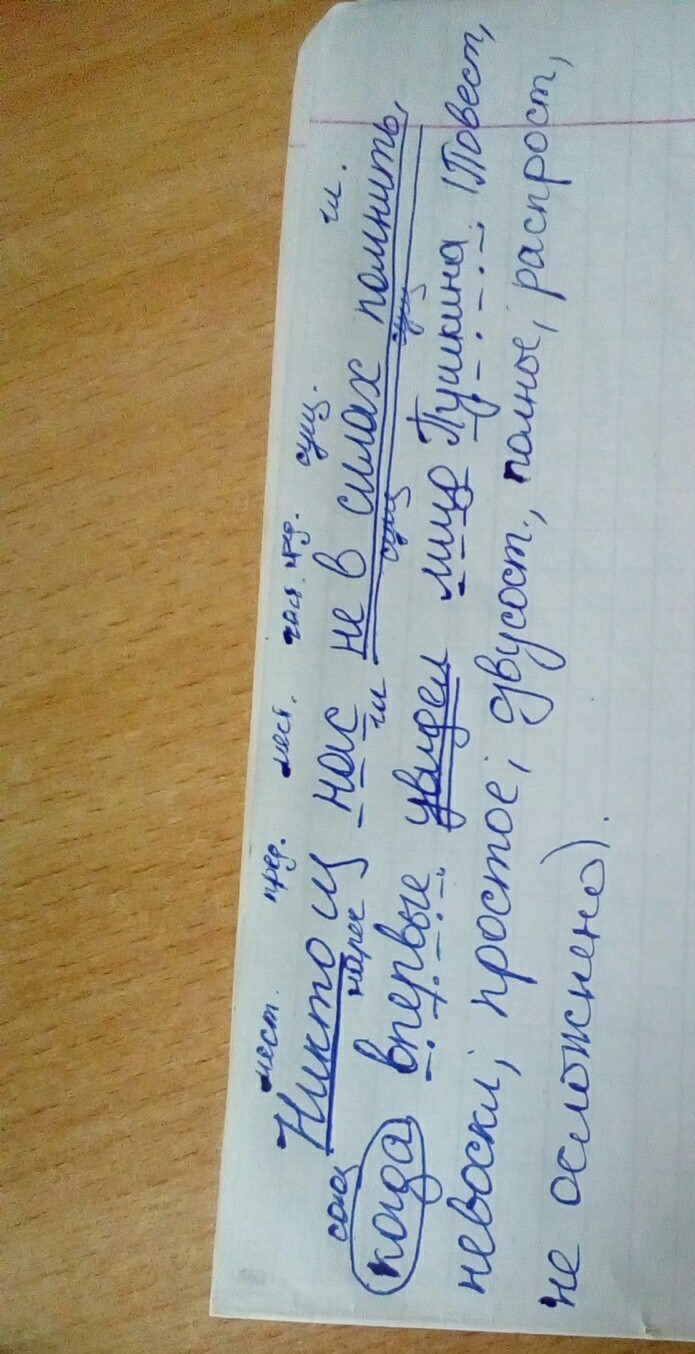 мест. пред. мест. част. пред. сущ. гл.
Никто из нас не в силах помнить,
союз нареч гл. сущ сущ
когда впервые увидел лицо Пушкина (Повест,
невоскл, простое, двусост., полное, распрост,
не осложнено).